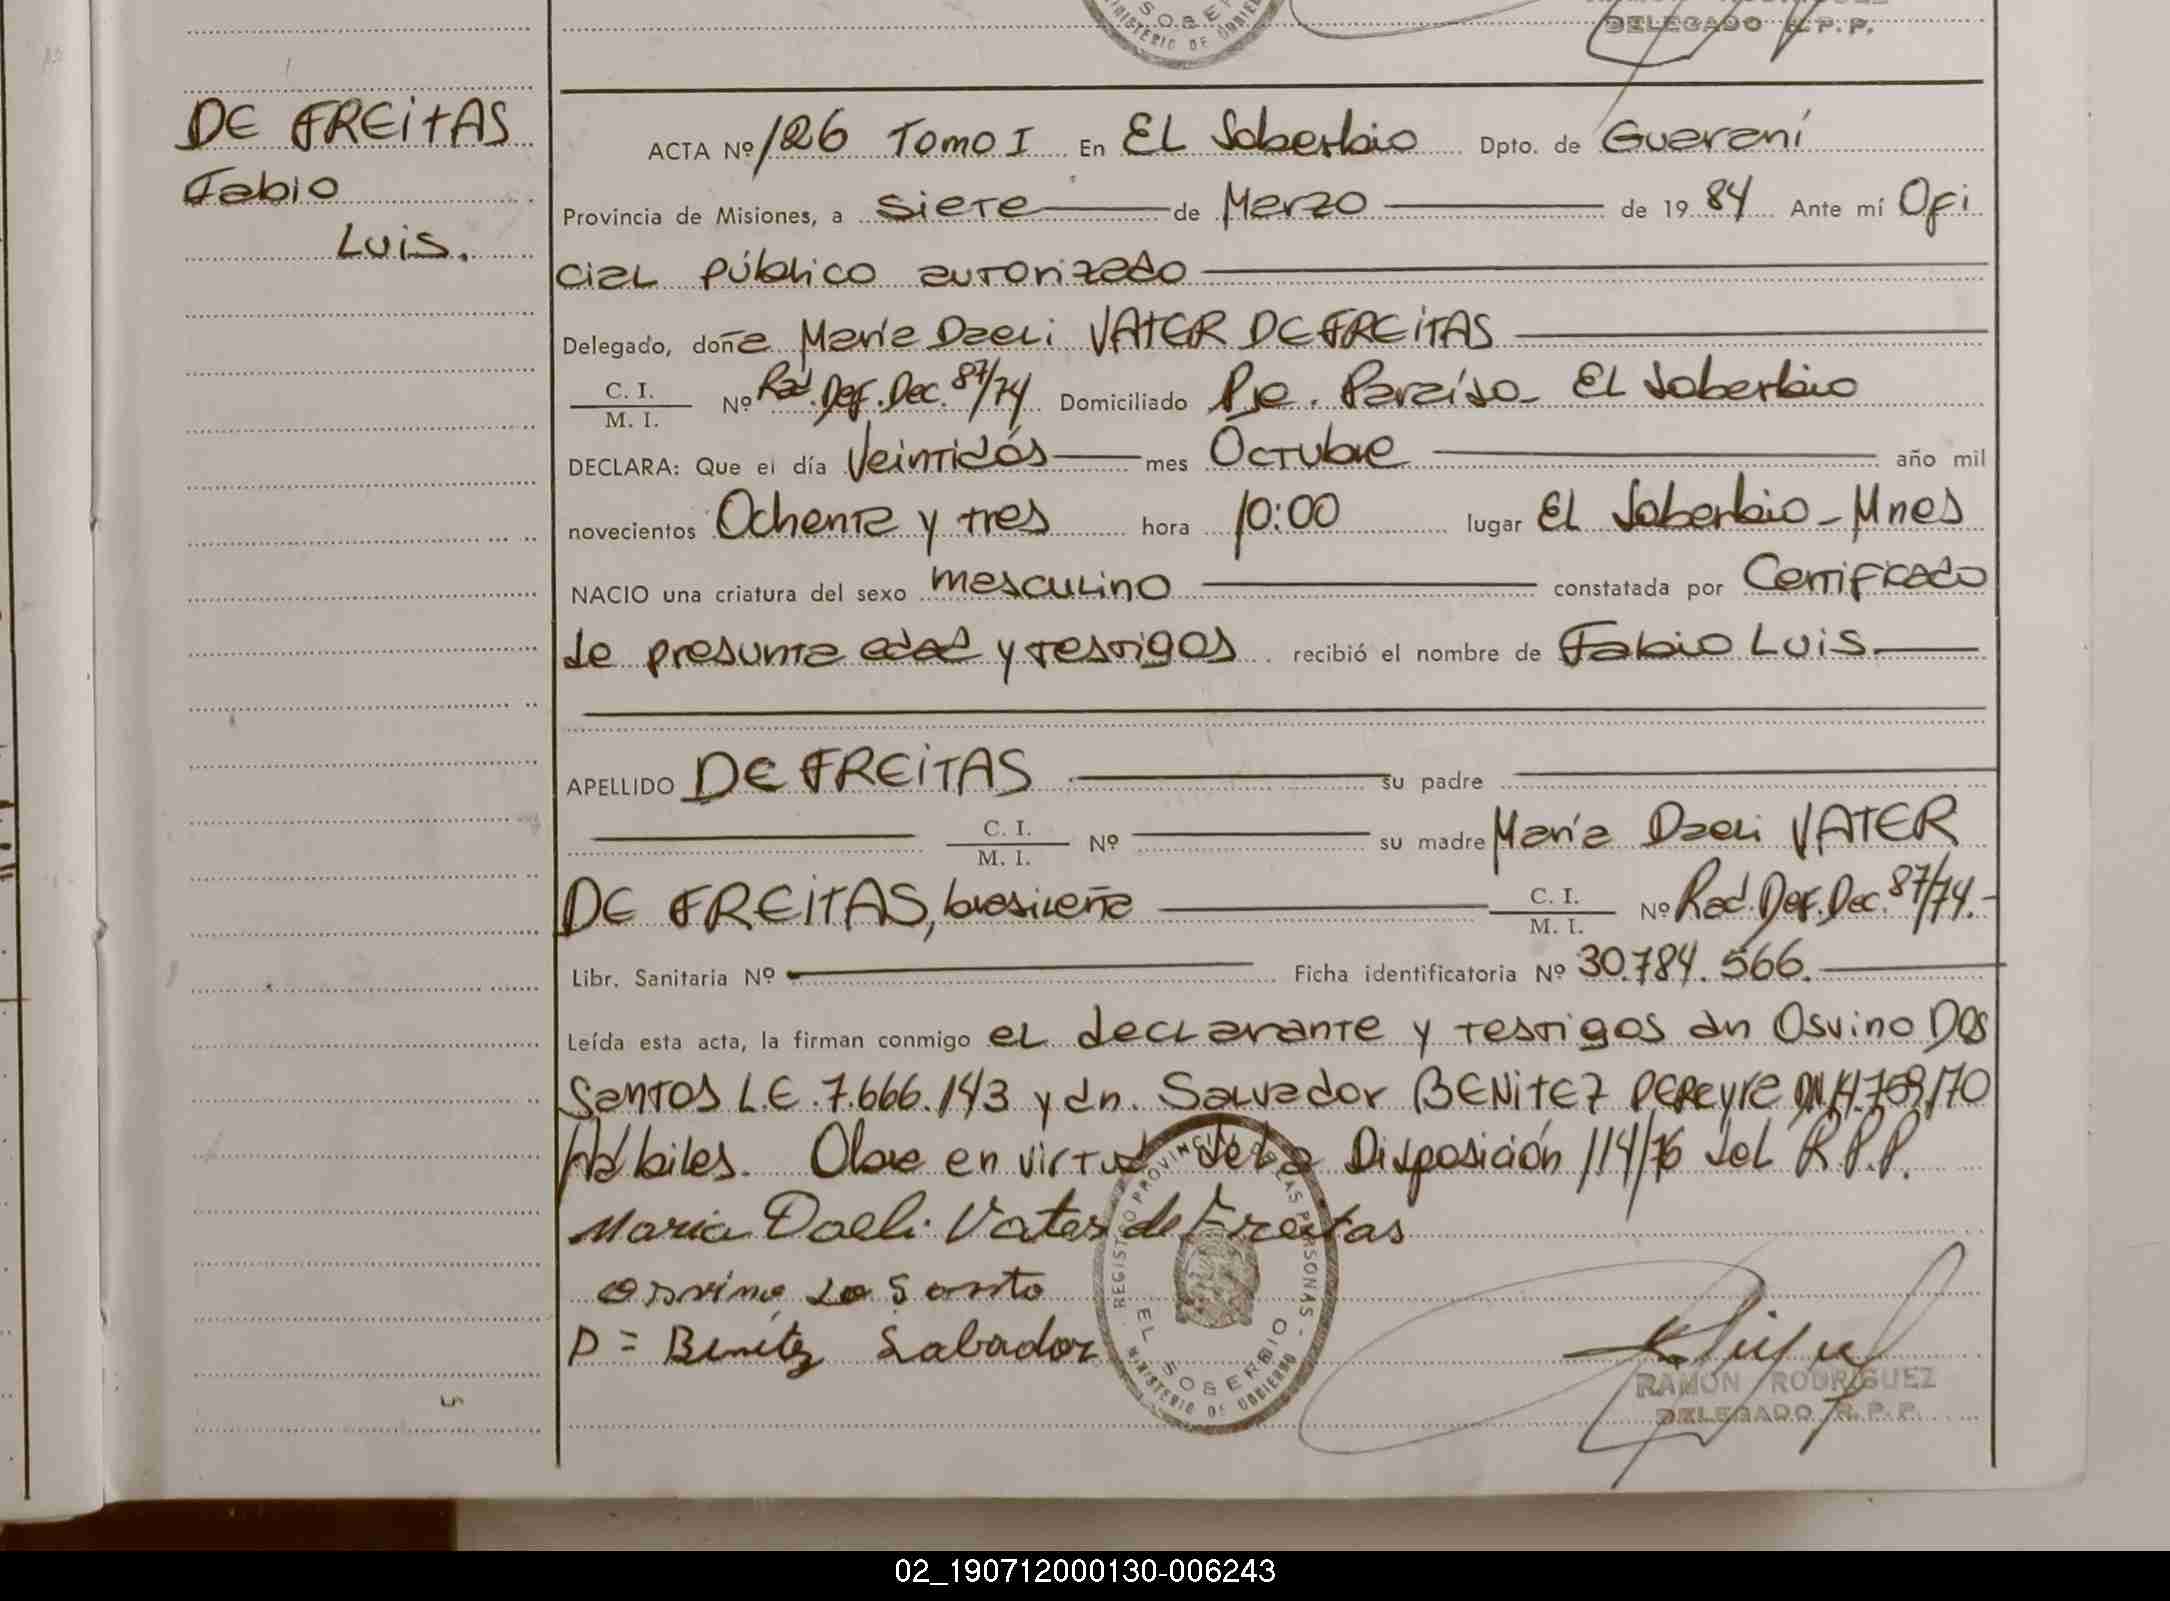 DELEGADO R.P.P.
DE FREITAS
Fabio
Luis.
ACTA Nº 126 Tomo I En EL Soberbio Dpto. de Guaraní
Provincia de Misiones, a siete de Marzo de 1984 Ante mí Ofi
cial público autorizado
Delegado, doña María Daeli VATER DE FREITAS
C. I.
M. I. Nº Rad. Def. Dec. 87/74 Domiciliado Pje. Paraíso - EL Soberbio
DECLARA: Que el día Veintidós mes Octubre año mil
novecientos Ochenta y tres hora 10:00 lugar EL Soberbio - Mnes
NACIO una criatura del sexo masculino constatada por Certificado
de presunta edad y testigos recibió el nombre de Fabio Luis
APELLIDO DE FREITAS su padre
C. I.
M. I. Nº su madre María Daeli VATER
DE FREITAS, brasileña C. I.
M. I. Nº Rad. Def. Dec. 87/74.-
Libr. Sanitaria Nº Ficha identificatoria Nº 30.784.566.
Leída esta acta, la firman conmigo el declarante y testigos dn Osvino DOS
Santos L.E. 7.666.143 y dn. Salvador BENITEZ PEREyra
Hábiles. Obre en virtud de la Disposición 114/76 del R.P.P.
Maria Daeli Vater de Freitas
P = Benitez Sabador
REGISTRO PROVINCIAL DE LAS PERSONAS
EL SOBERBIO
MINISTERIO DE GOBIERNO
RAMON RODRIGUEZ
DELEGADO R.P.P.
02_190712000130-006243